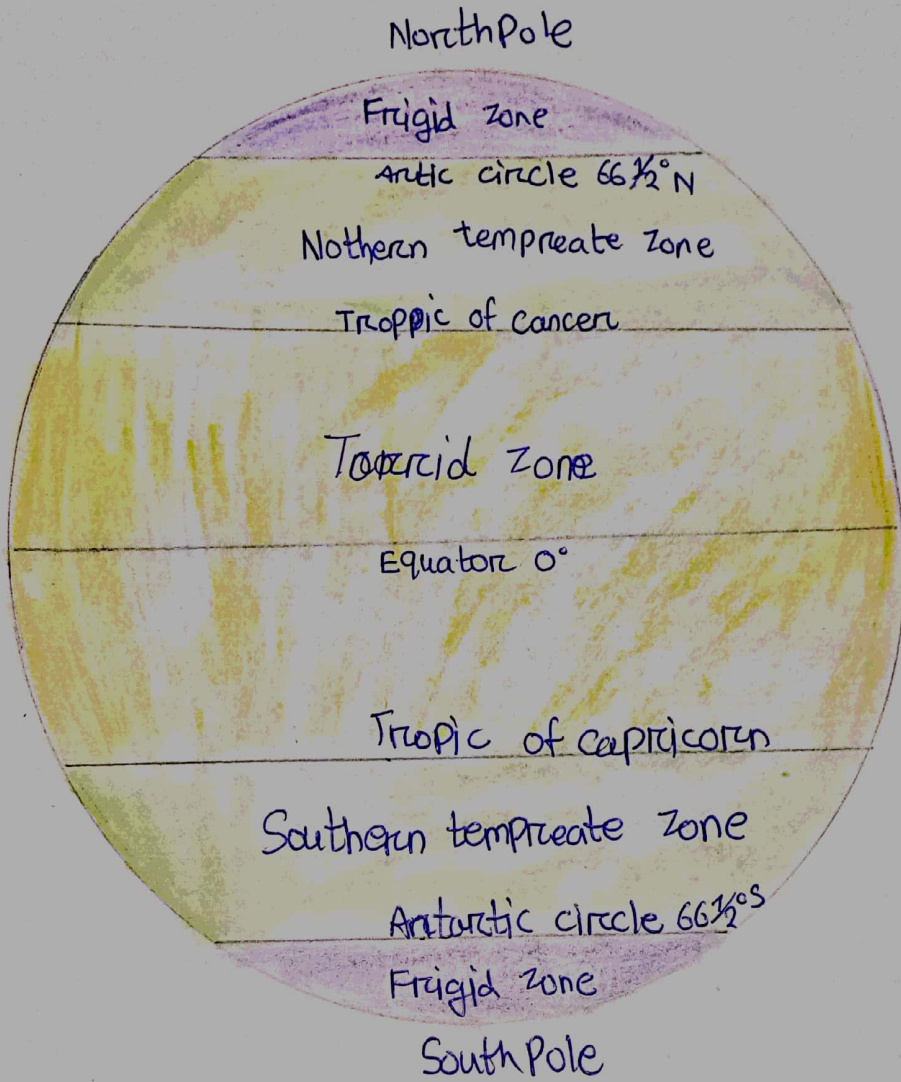 North Pole
Frigid Zone
Artic circle 66 1/2° N
Nothern tempreate Zone
Troppic of Cancer
Torrid Zone
Equator 0°
Tropic of Capricorn
Southern tempreate Zone
Antartic circle 66 1/2° S
Frigid Zone
South Pole